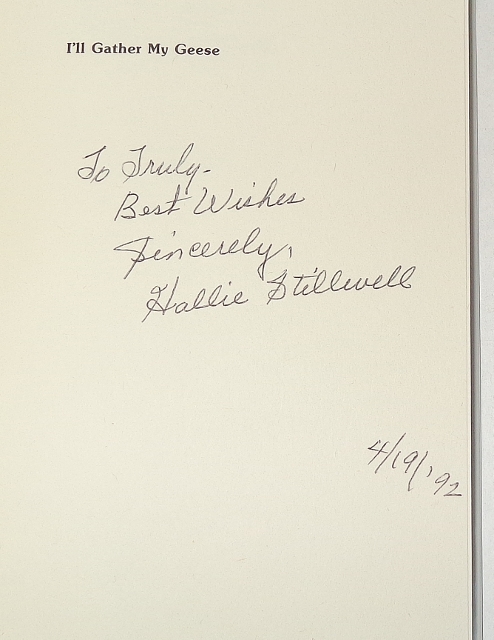 I'll Gather My Geese
To Truly.
Best Wishes
Sincerely,
Hallie Stillwell
4/19/'92